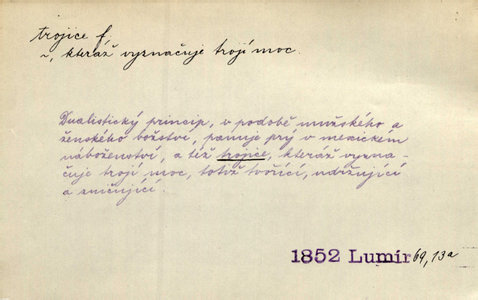 trojice f.
~, kteráž vyznačuje trojí moc.
Dualistický princip, v podobě mužského a
ženského božství, panuje prý v mexickém
náboženství, a též trojice, kteráž vyzna-
čuje trojí moc, totiž tvořící, udržující
a zničující.
1852 Lumír 69,13a